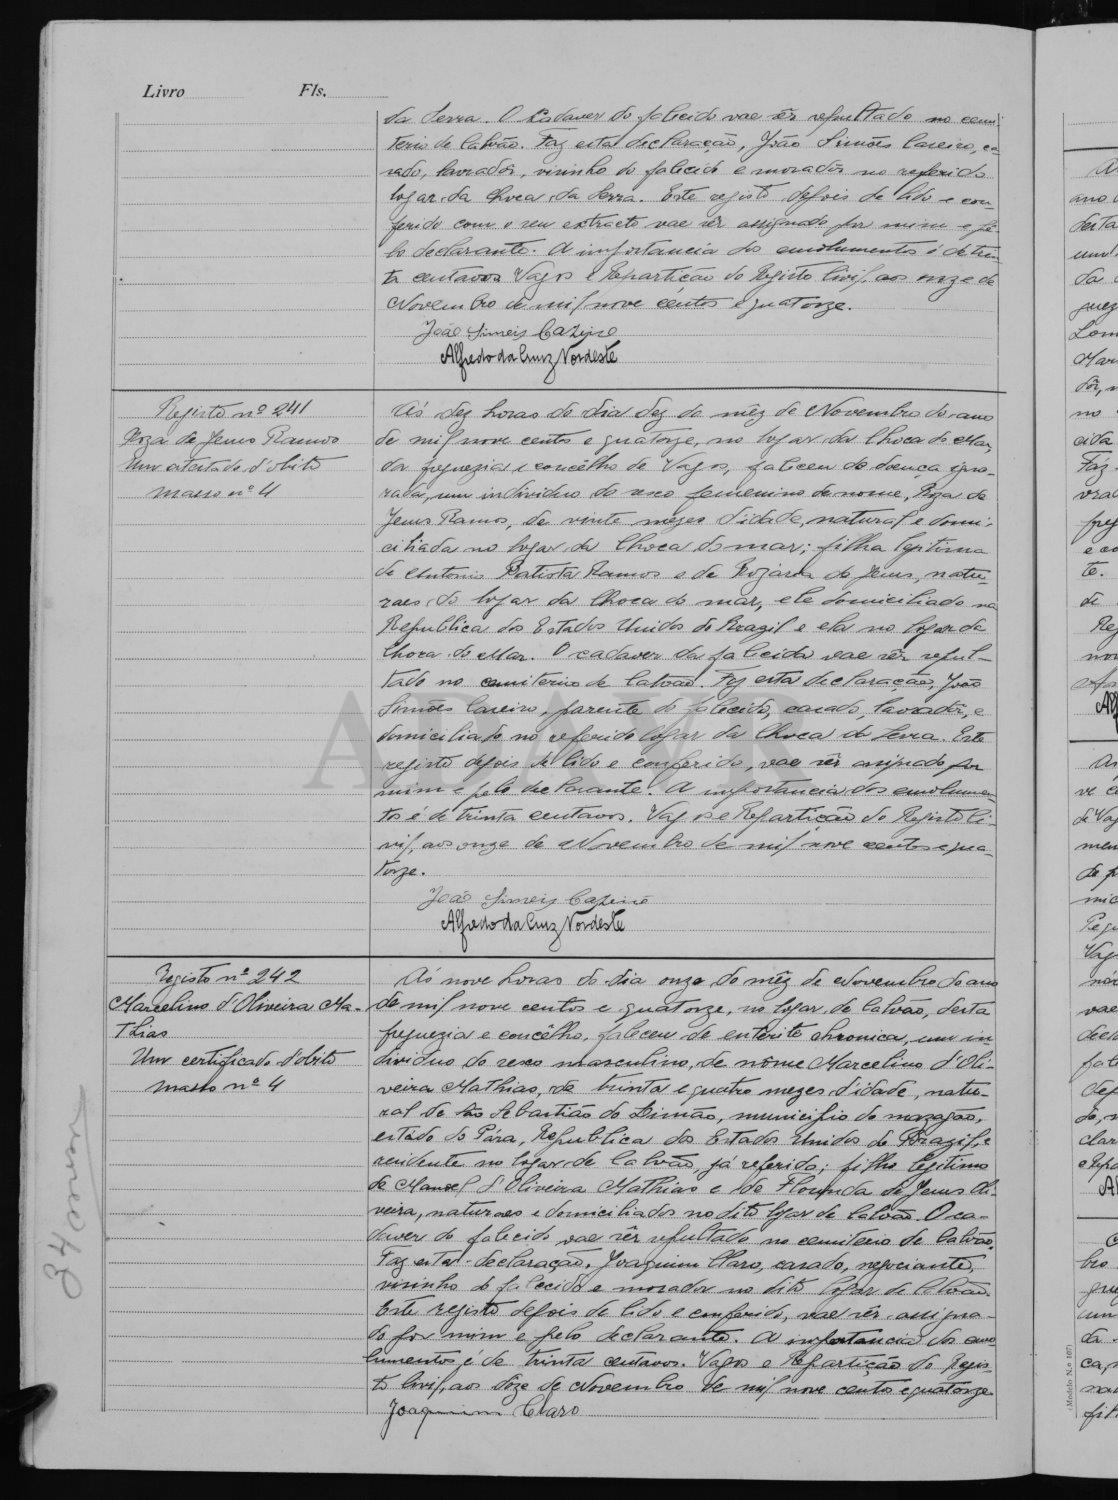 Livro Fls.
da Serra. O cadaver do falecido vae sêr sepultado no cemi-
terio de Calvão. Faz esta declaração, João Simões Caseiro, ca-
sado, lavradôr, visinho do falecido e moradôr no referido
logar da Choca da Serra. Este registo depois de lido e con-
ferido com o seu extracto vae sêr assignado por mim e pe-
lo declarante. A importancia dos emolumentos é de trin-
ta centavos. Vagos e Repartição do Registo Civil, aos onze de
Novembro de mil nove centos e quatorze.
João Simeis Cazeiro
Alfredo da Cruz Nordeste
Registo nº 241
Roza de Jesus Ramos
Um atestado d'obito
masso nº 4
Ás dez horas do dia dez do mêz de Novembro do ano
de mil nove centos e quatorze, no logar da Choca do Mar,
da freguezia e concêlho de Vagos, faleceu de doença igno-
rada, um individuo do sexo femenino de nome, Roza de
Jesus Ramos, de vinte mezes d'idade, natural e domi-
ciliada no logar da Choca do mar; filha legitima
de Antonio Batista Ramos e de Rozaria de Jesus, natu-
raes do logar da Choca do mar, ele domiciliado na
Republica dos Estados Unidos do Brazil e ela no logar da
Choca do Mar. O cadaver da falecida vae sêr sepul-
tado no cemiterio de Calvão. Fez esta declaração, João
Simões Caseiro, parente do falecido, casado, lavradôr, e
domiciliado no referido logar da Choca da Serra. Este
registo depois de lido e conferido, vae sêr assignado por
mim e pelo declarante. A importancia dos emolumen-
tos é de trinta centavos. Vagos e Repartição do Registo Ci-
vil, aos onze de Novembro de mil nove centos e qua-
torze.
João Simeis Cazeiro
Alfredo da Cruz Nordeste
Registo nº 242
Marcelino d'Oliveira Ma-
thias
Um certificado d'obito
masso nº 4
Ás nove horas do dia onze do mêz de Novembro do ano
de mil nove centos e quatorze, no logar de Calvão, desta
freguezia e concêlho, faleceu de enterite chronica, um in-
dividuo do sexo masculino, de nôme Marcelino d'Oli-
veira Mathias, de trinta e quatro mezes d'idade, natu-
ral de São Sebastião do municipio de mazagão,
estado do Pára, Republica dos Estados Unidos do Brazil, e
residente no logar de Calvão, já referido; filho legitimo
de Manoel d'Oliveira Mathias e de Florinda de Jesus Oli-
veira, naturaes e domiciliados no dito logar de Calvão. O ca-
daver do falecido vae sêr sepultado no cemiterio de Calvão.
Faz esta declaração, Joaquim Claro, casado, negociante,
visinho do falecido e moradôr no dito logar de Calvão.
Este registo depois de lido e conferido, vae sêr assigna-
do por mim e pelo declarante. A importancia dos emo-
lumentos é de trinta centavos. Vagos e Repartição do Regis-
to Civil, aos dôze de Novembro de mil nove centos e quatorze
Joaquim Claro
34 meses
(Modelo N.o 167)